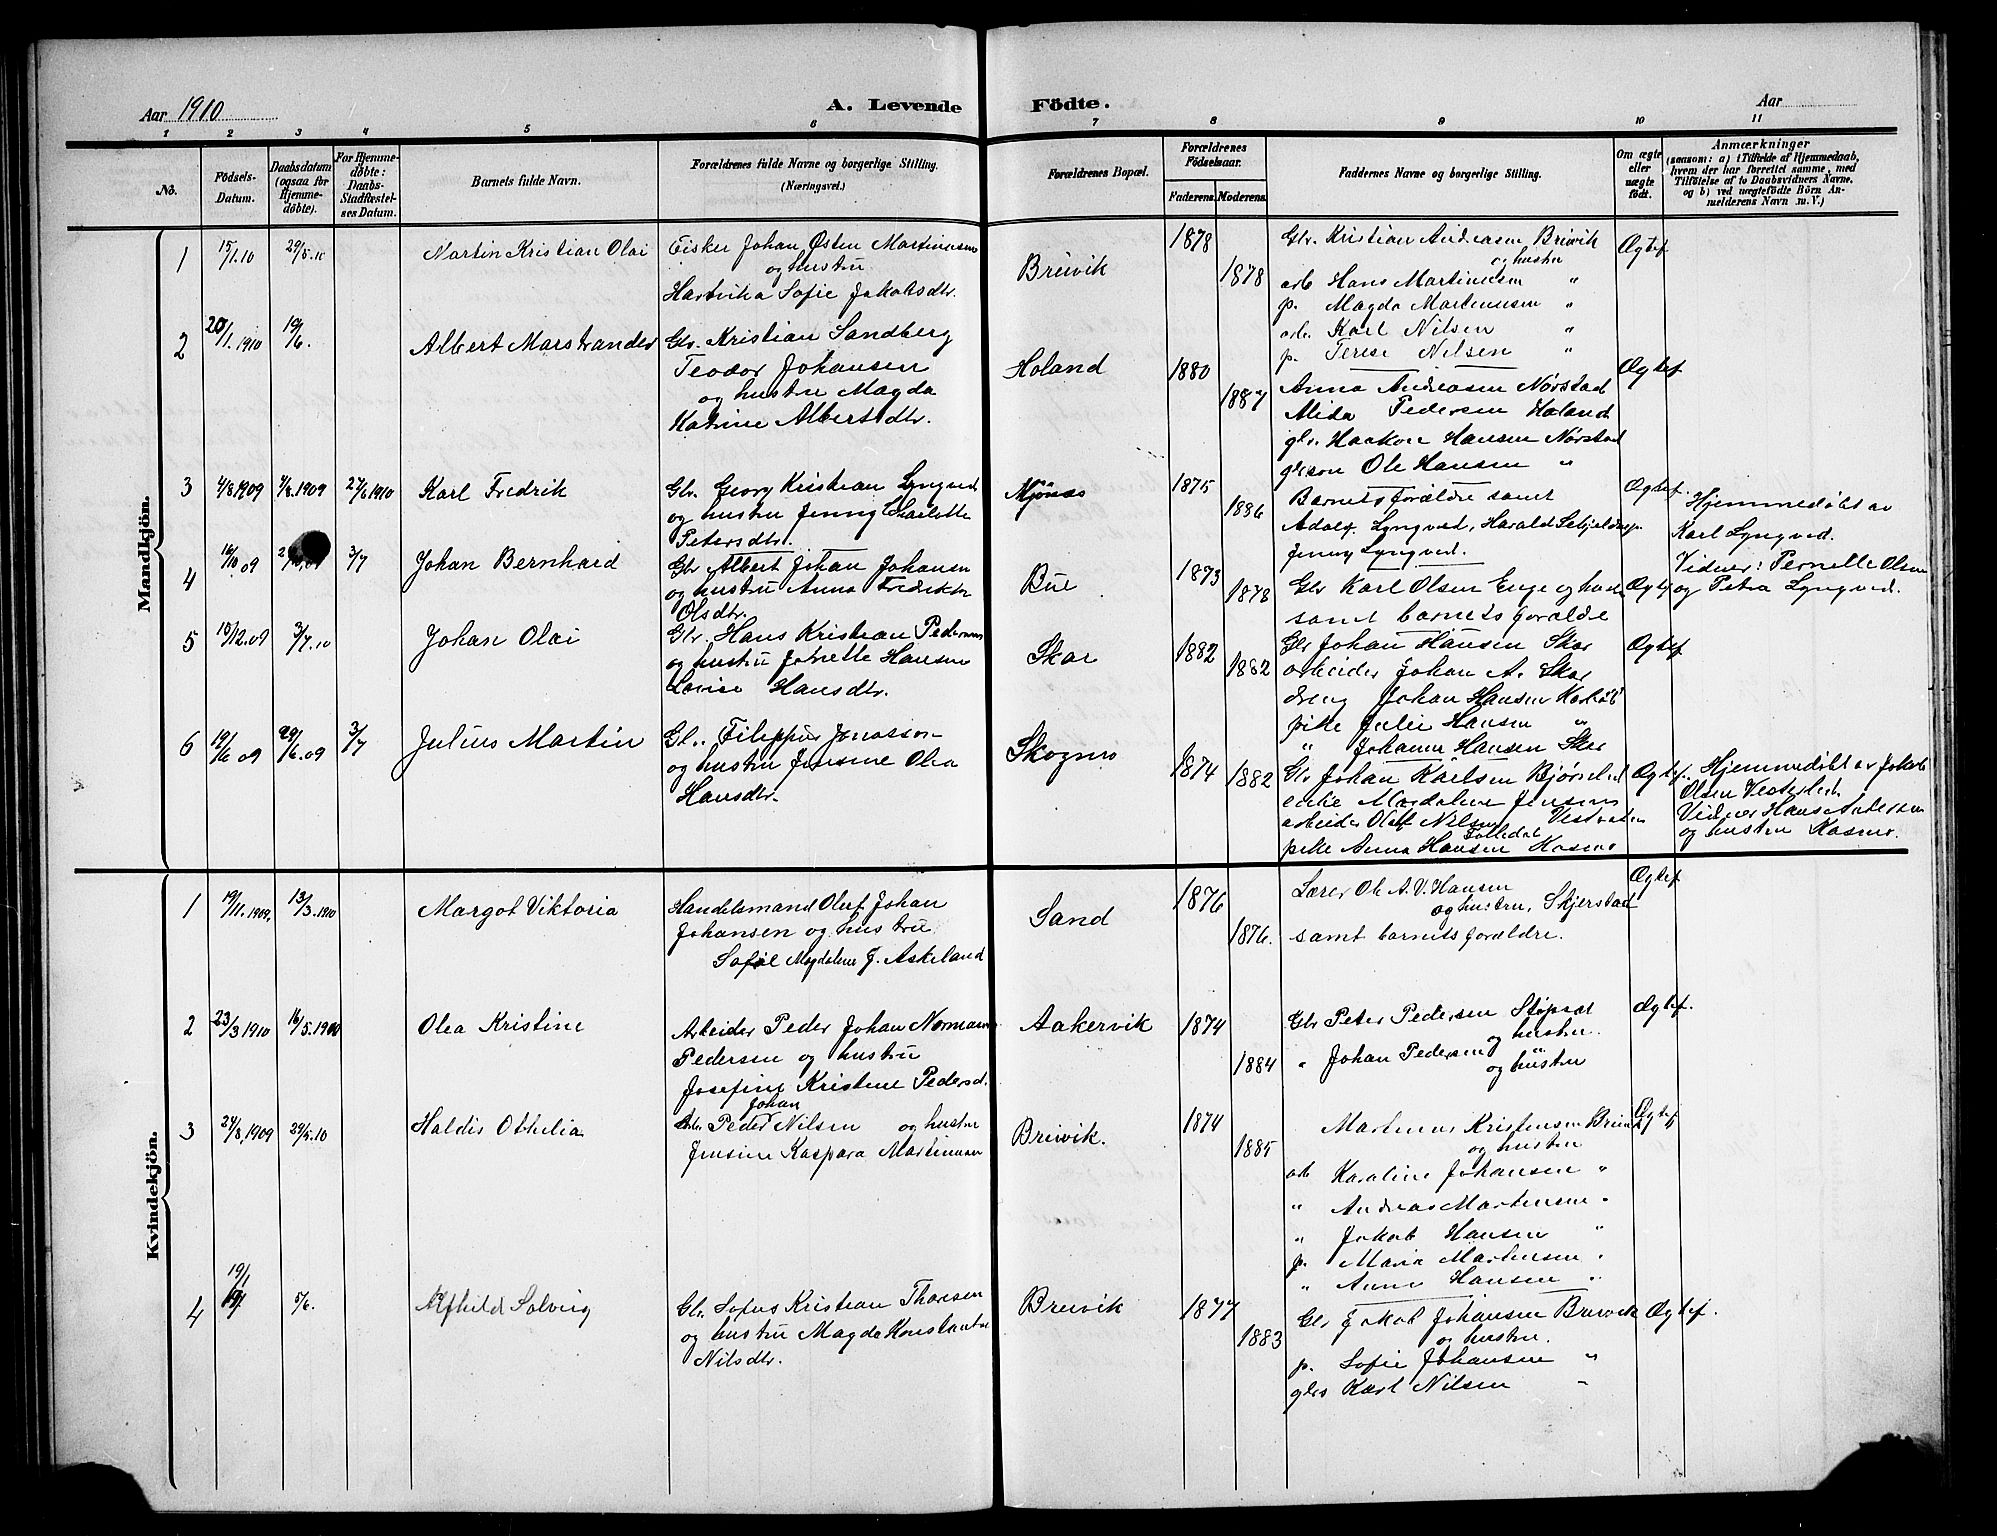 Aar 1910
A. Levende Födte.
Aar
1 2 3 4 5 6 7 8 9 10 11
No.
Födsels-Datum.
Daabsdatum (ogsaa for Hjemmedøbte).
For Hjemmedøbte: Daabs-Stadfæstelses Datum.
Barnets fulde Navn.
Forældrenes fulde Navne og borgerlige Stilling.
(Næringsvei.)
Forældrenes Bopæl.
Forældrenes Födselsaar.
Faderens. Moderens.
Faddernes Navne og borgerlige Stilling.
Om ægte eller uægte født.
Anmærkninger
(saasom: a) i Tilfælde af Hjemmedaab,
hvem der har forrettet samme, med
Tilföielse af to Daabsvidners Navne,
og b) ved uægtefödte Börn An-
melderens Navn m. V.)
Mandkjön.
1 15/1.10 29/5.10 Martin Kristian Olai
Fisker Johan Østen Martinussen
og hustru
Hartvika Sofie Jakobsdtr.
Breivik 1878 1878
Gbr. Kristian Andreasen Breivik
og hustru
arb Hans Martinussen "
p. Magda Martinussen "
arb. Karl Nilsen "
p. Terese Nilsen "
Ægtef
2 20/1.1910 19/6. Albert Marstrander
Gbr. Kristian Sandberg
Teodor Johansen
og hustru Magda
Katrine Albertsdtr.
Holand 1880 1887
Anna Andreasen Nørstad
Alida Pedersen Holand
gbr. Haakon Hansen Nørstad
gbrsøn Ole Hansen "
Ægtef
3 4/8.1909 9/8.1909 27/6 1910 Karl Fredrik
Gbr. Georg Kristian Lyngved
og hustru Jenny Charlotte
Petersdtr.
Mjönes 1875 1886
Barnets forældre samt
Adolf Lyngved, Harald
Jenny Lyngved.
Ægtef.
Hjemmedøbt av
Karl Lyngved.
Vidner: Pernelle Olsen
og Petra Lyngved.
4 16/10 09 3/7 Johan Bernhard
Gbr Albert Johan Johansen
og hustru Anna
Olsdtr.
Bue 1873 1878
Gbr Karl Olsen Enge og hustru
samt barnets forælde
Ægtef
5 10/12.09 3/7.10 Johan Olai
Gbr. Hans Kristian Pedersen
og hustru Jonette Hansen
Lovise Hansdtr.
Skar 1882 1882
Gbr Johan Hansen Skar
arbeider Johan A. Skar
dreng Johan Hansen
pike Julei Hansen "
" Johanna Hansen Skar
Ægtef
6 19/6 09 29/6.09 3/7 Julius Martin
Gbr. Filippus Jonasson
og hustru Jensine Olea
Hansdtr.
Skogmo 1874 1882
Gbr Johan Karlsen Bjørnlid
enke Magdalena Jensen
arbeider Olaf Nilsen Vestvaten
Tolledal
pike Anna Hansen Kosmo
Ægtef.
Hjemmedøbt av Jakob
Olsen Vesterled.
Vidner Hans Andersen
og hustru Kosmo.
Kvindekjön.
1 19/11.1909. 13/3.1910 Margot Viktoria
Handelsmand Olert Johan
Johansen og hustru
Sofie Magdalene J. Askeland
Sand 1876 1876.
Lærer Ole A. V. Hansen
og hustru, Skjerstad
samt barnets forældre.
Ægtef
2 23/3 1910 16/5.1910 Olea Kristine
Arbeider Peder Johan Normann
Pedersen og hustru
Josefine Kristine Pedersd.
Aakervik 1874 1884
Gbr Peter Pedersen Støpset
og hustru.
" Johan Pedersen "
og hustru
Ægtef.
3 24/8.1909 29/5.10 Haldis Othelia
Johan
Gbr. Peder Nilsen og hustru
Jensine Kaspara Martinsen
Breivik. 1874 1885
Martinus Kristensen Breivik
og hustru
arb Karoline Johansen "
" Andreas Martensen "
" Jakob Hansen "
p. Maria Martensen "
" Anna Hansen "
Ægtef
4 19/1 5/6. Alfhild Solveig
Gbr. Sofus Kristian Thorsen
og hustru Magda Konstantse
Nilsdtr.
Breivik 1877 1883
Gbr Jakob Johansen Breivik
og hustru.
p. Sofie Johansen "
gbrs Karl Nilsen "
Ægtef.